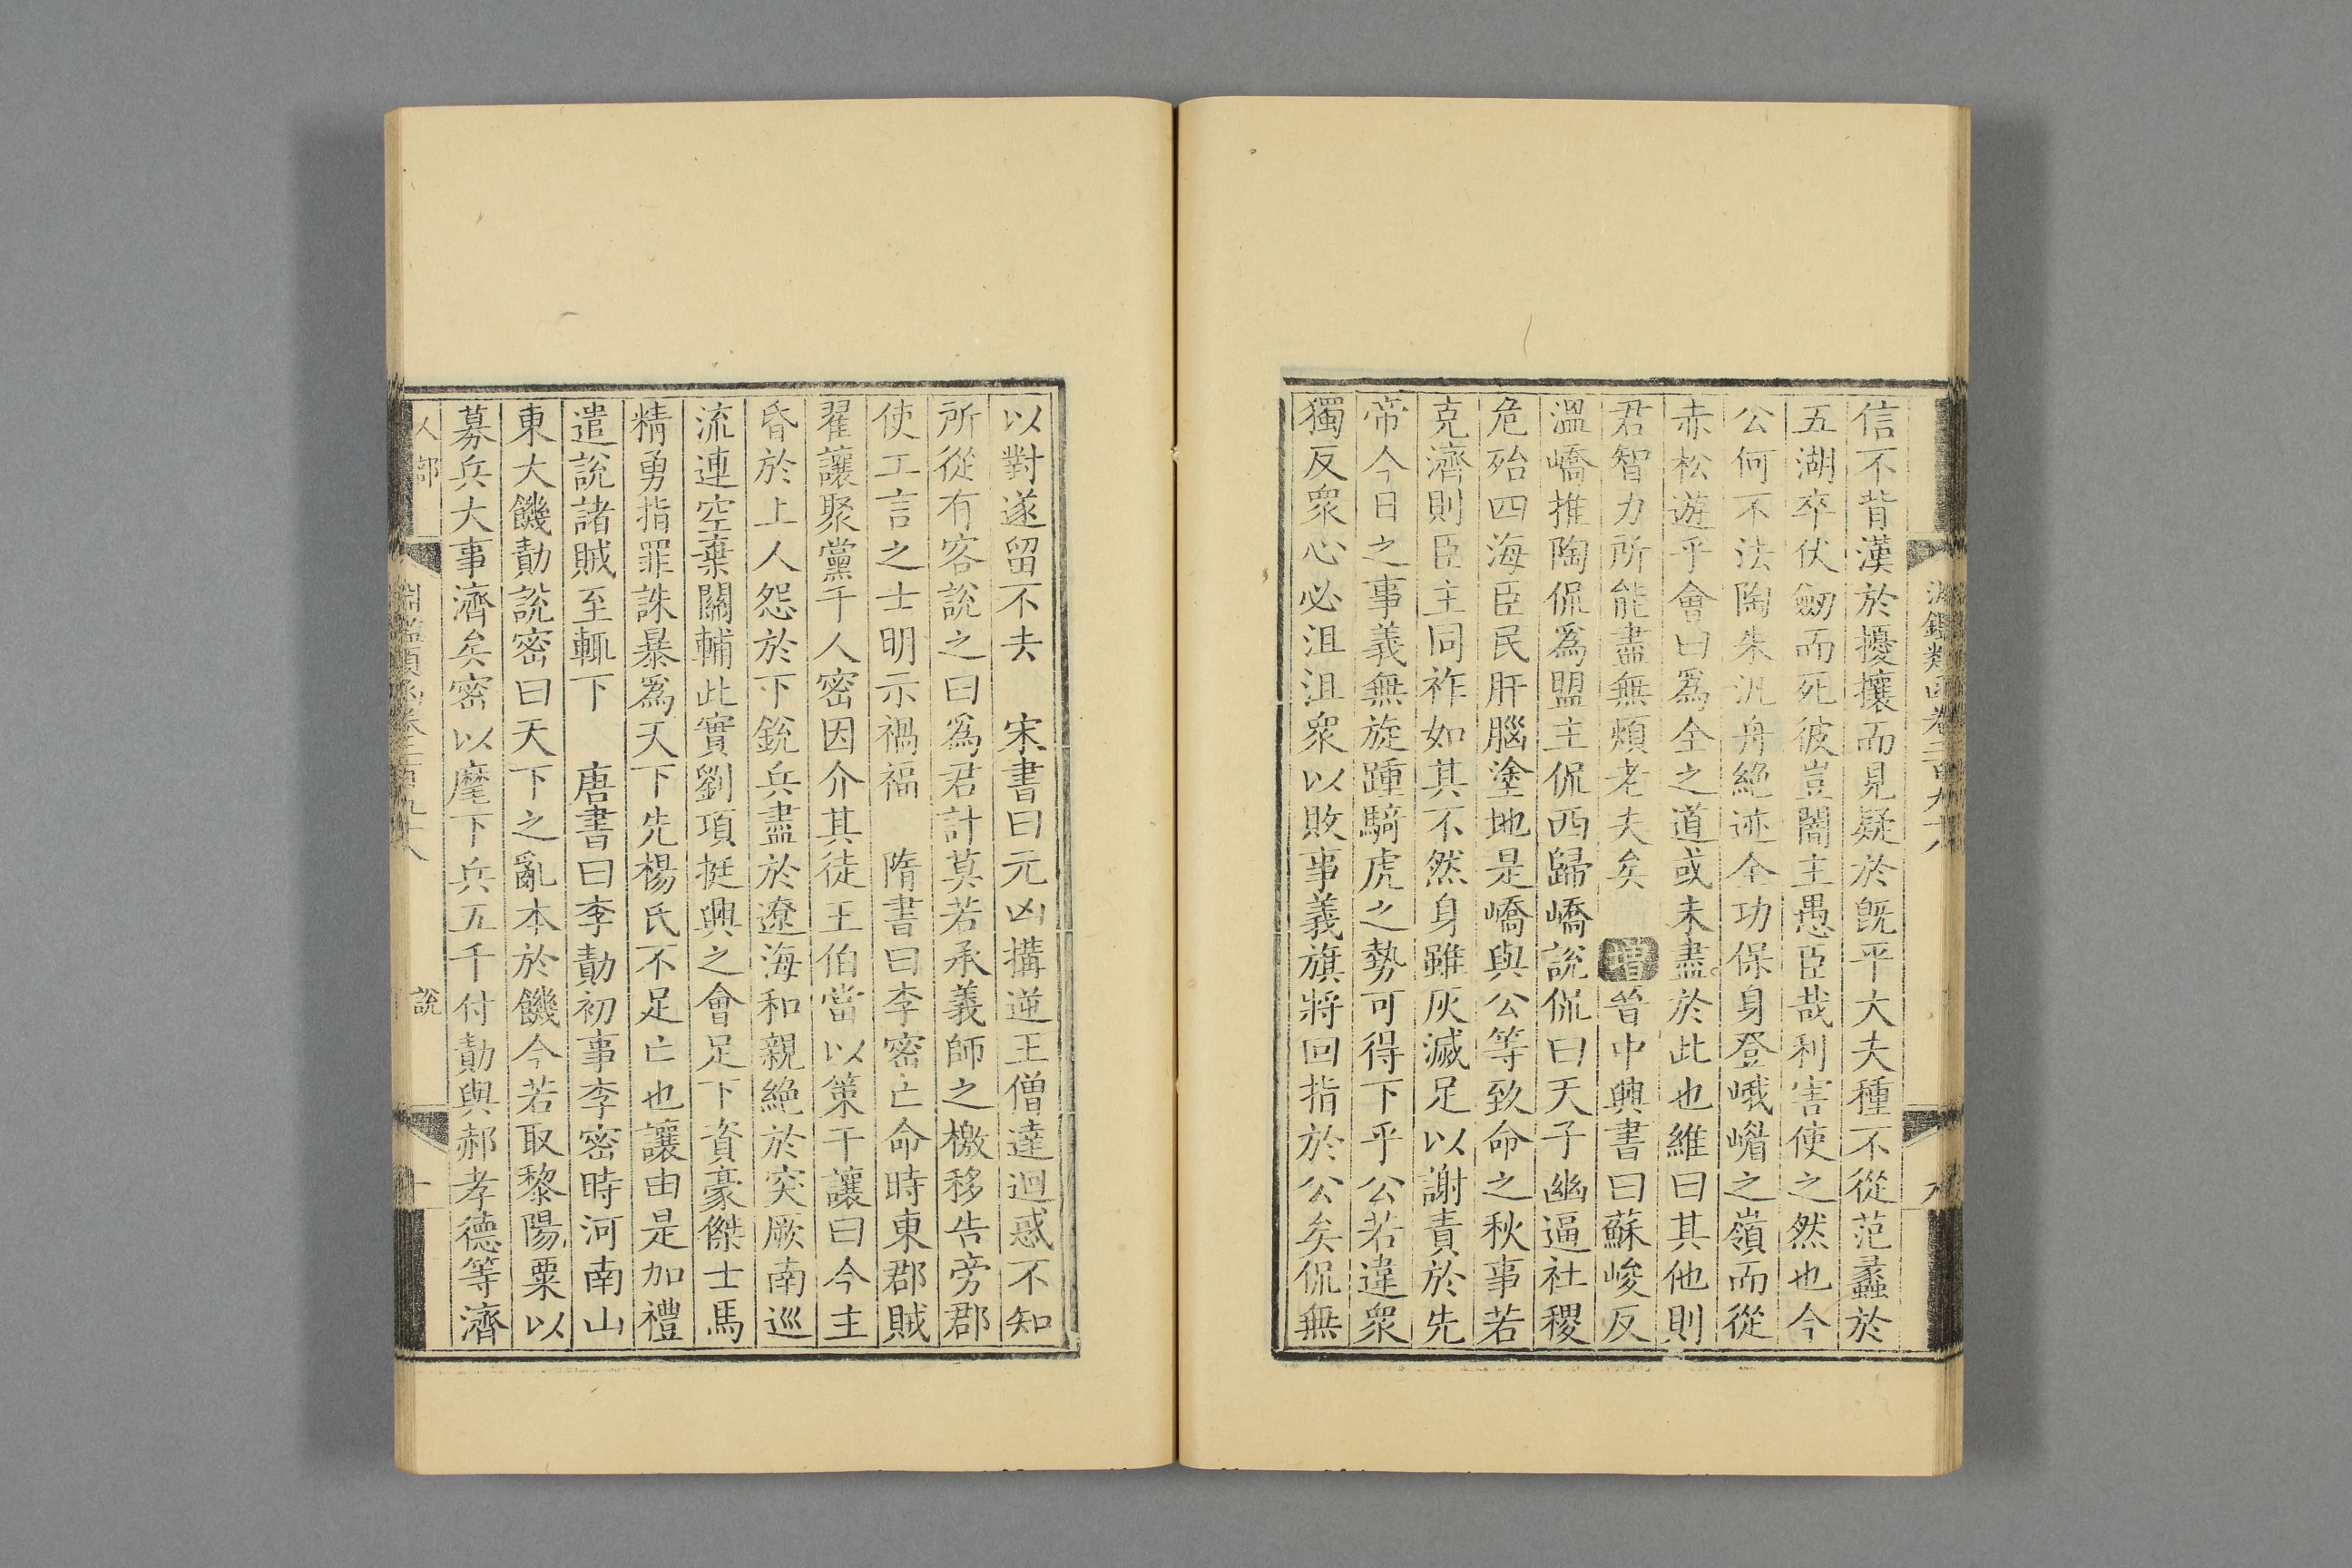 淵鑑類函卷二百九十八
九
信不背漢於擾攘而見疑於旣平大夫種不從范蠡於
五湖卒伏劒而死彼豈闇主愚臣哉利害使之然也今
公何不法陶朱汎舟絶迹全功保身登峨嵋之嶺而從
赤松遊乎會曰爲全之道或未盡於此也維曰其他則
君智力所能盡無煩老夫矣　增晉中興書曰蘇峻反
溫嶠推陶侃爲盟主侃西歸嶠說侃曰天子幽逼社稷
危殆四海臣民肝腦塗地是嶠與公等致命之秋事若
克濟則臣主同祚如其不然身雖灰滅足以謝責於先
帝今日之事義無旋踵騎虎之勢可得下乎公若違衆
獨反衆心必沮沮衆以敗事義旗將回指於公矣侃無
以對遂留不去　宋書曰元凶搆逆王僧達迴惑不知
所從有客說之曰爲君計莫若承義師之檄移告旁郡
使工言之士明示禍福　隋書曰李密亡命時東郡賊
翟讓聚黨千人密因介其徒王伯當以策干讓曰今主
昏於上人怨於下銳兵盡於遼海和親絶於突厥南巡
流連空棄關輔此實劉項挺興之會足下資豪傑士馬
精勇指罪誅暴爲天下先楊氏不足亡也讓由是加禮
遣說諸賊至輒下　唐書曰李勣初事李密時河南山
東大饑勣說密曰天下之亂本於饑今若取黎陽粟以
募兵大事濟矣密以麾下兵五千付勣與郝孝德等濟
人部
淵鑑類函卷二百九十八
說
十